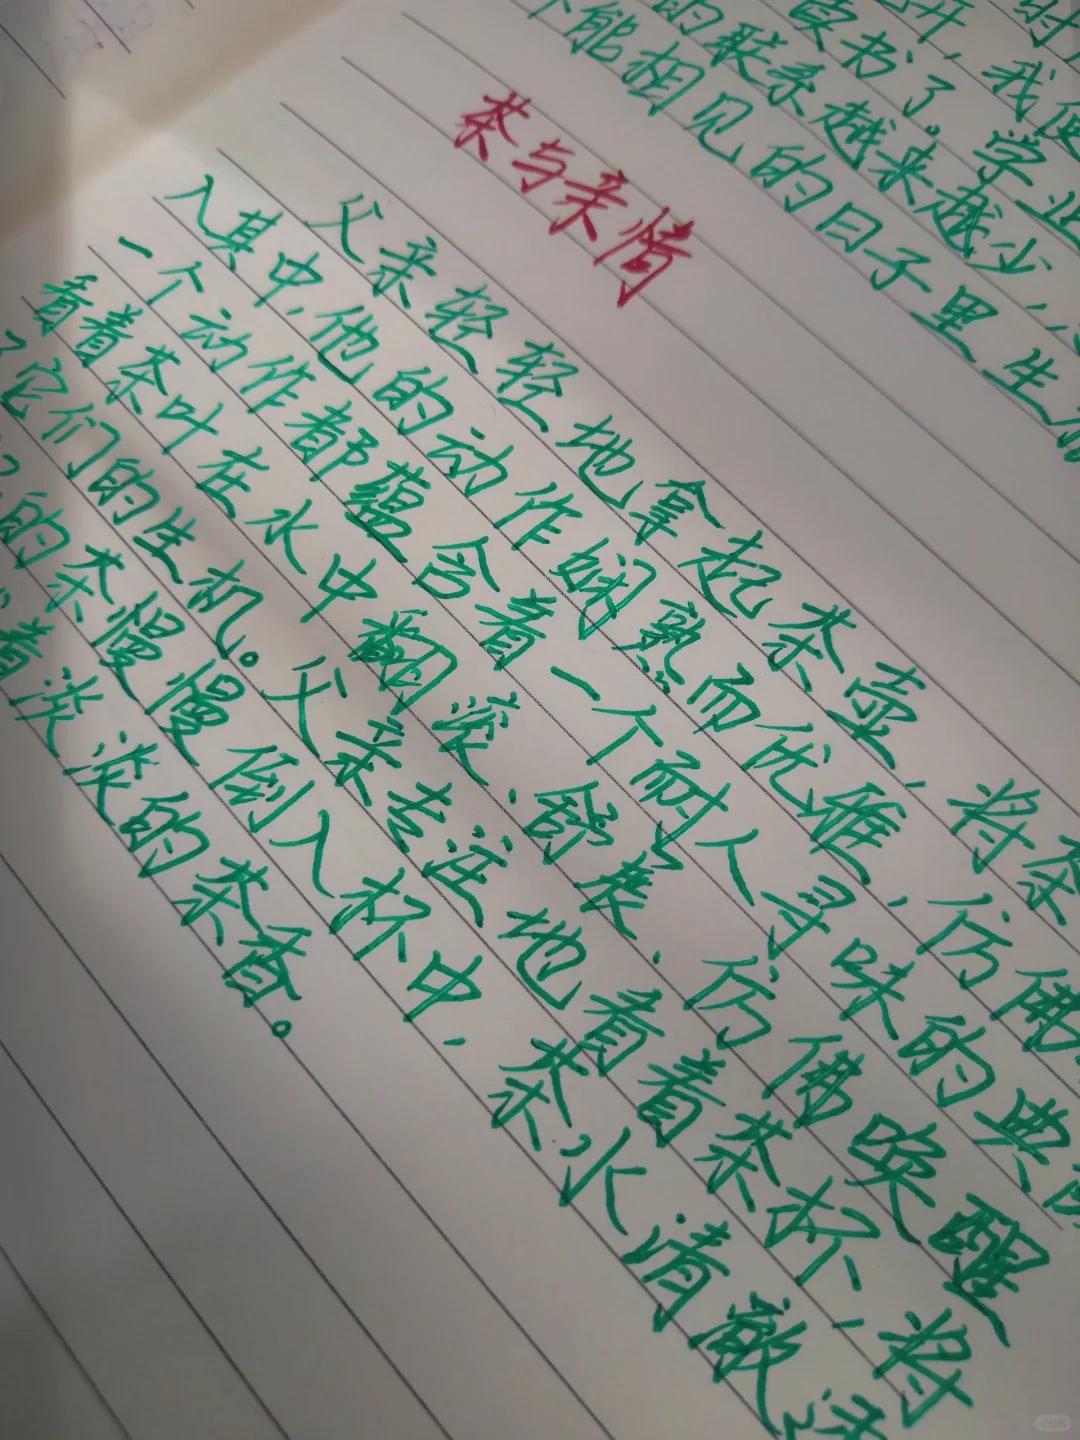 时
开，我便
书了。学业
的联系越来越少，
不能相见的日子里生
茶与亲情
父亲轻轻地拿起茶壶，将茶
入其中，他的动作娴熟而优雅，仿佛
一个动作都蕴含着一个耐人寻味的典
看着茶叶在水中翻滚、舒展、仿佛唤醒
了它们的生机。父亲专注地看着茶杯，将
的茶慢慢倒入杯中，茶水清澈透
着淡淡的茶香。